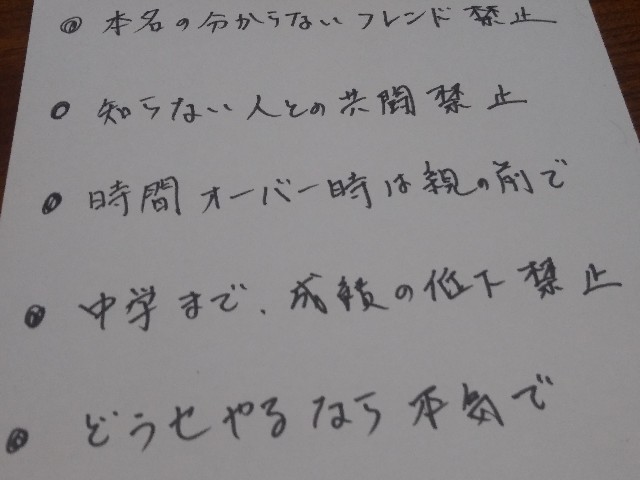 本名の分からないフレンド禁止
知らない人との共闘禁止
時間オーバー時は親の前で
中学まで、成績の低下禁止
どうせやるなら本気で